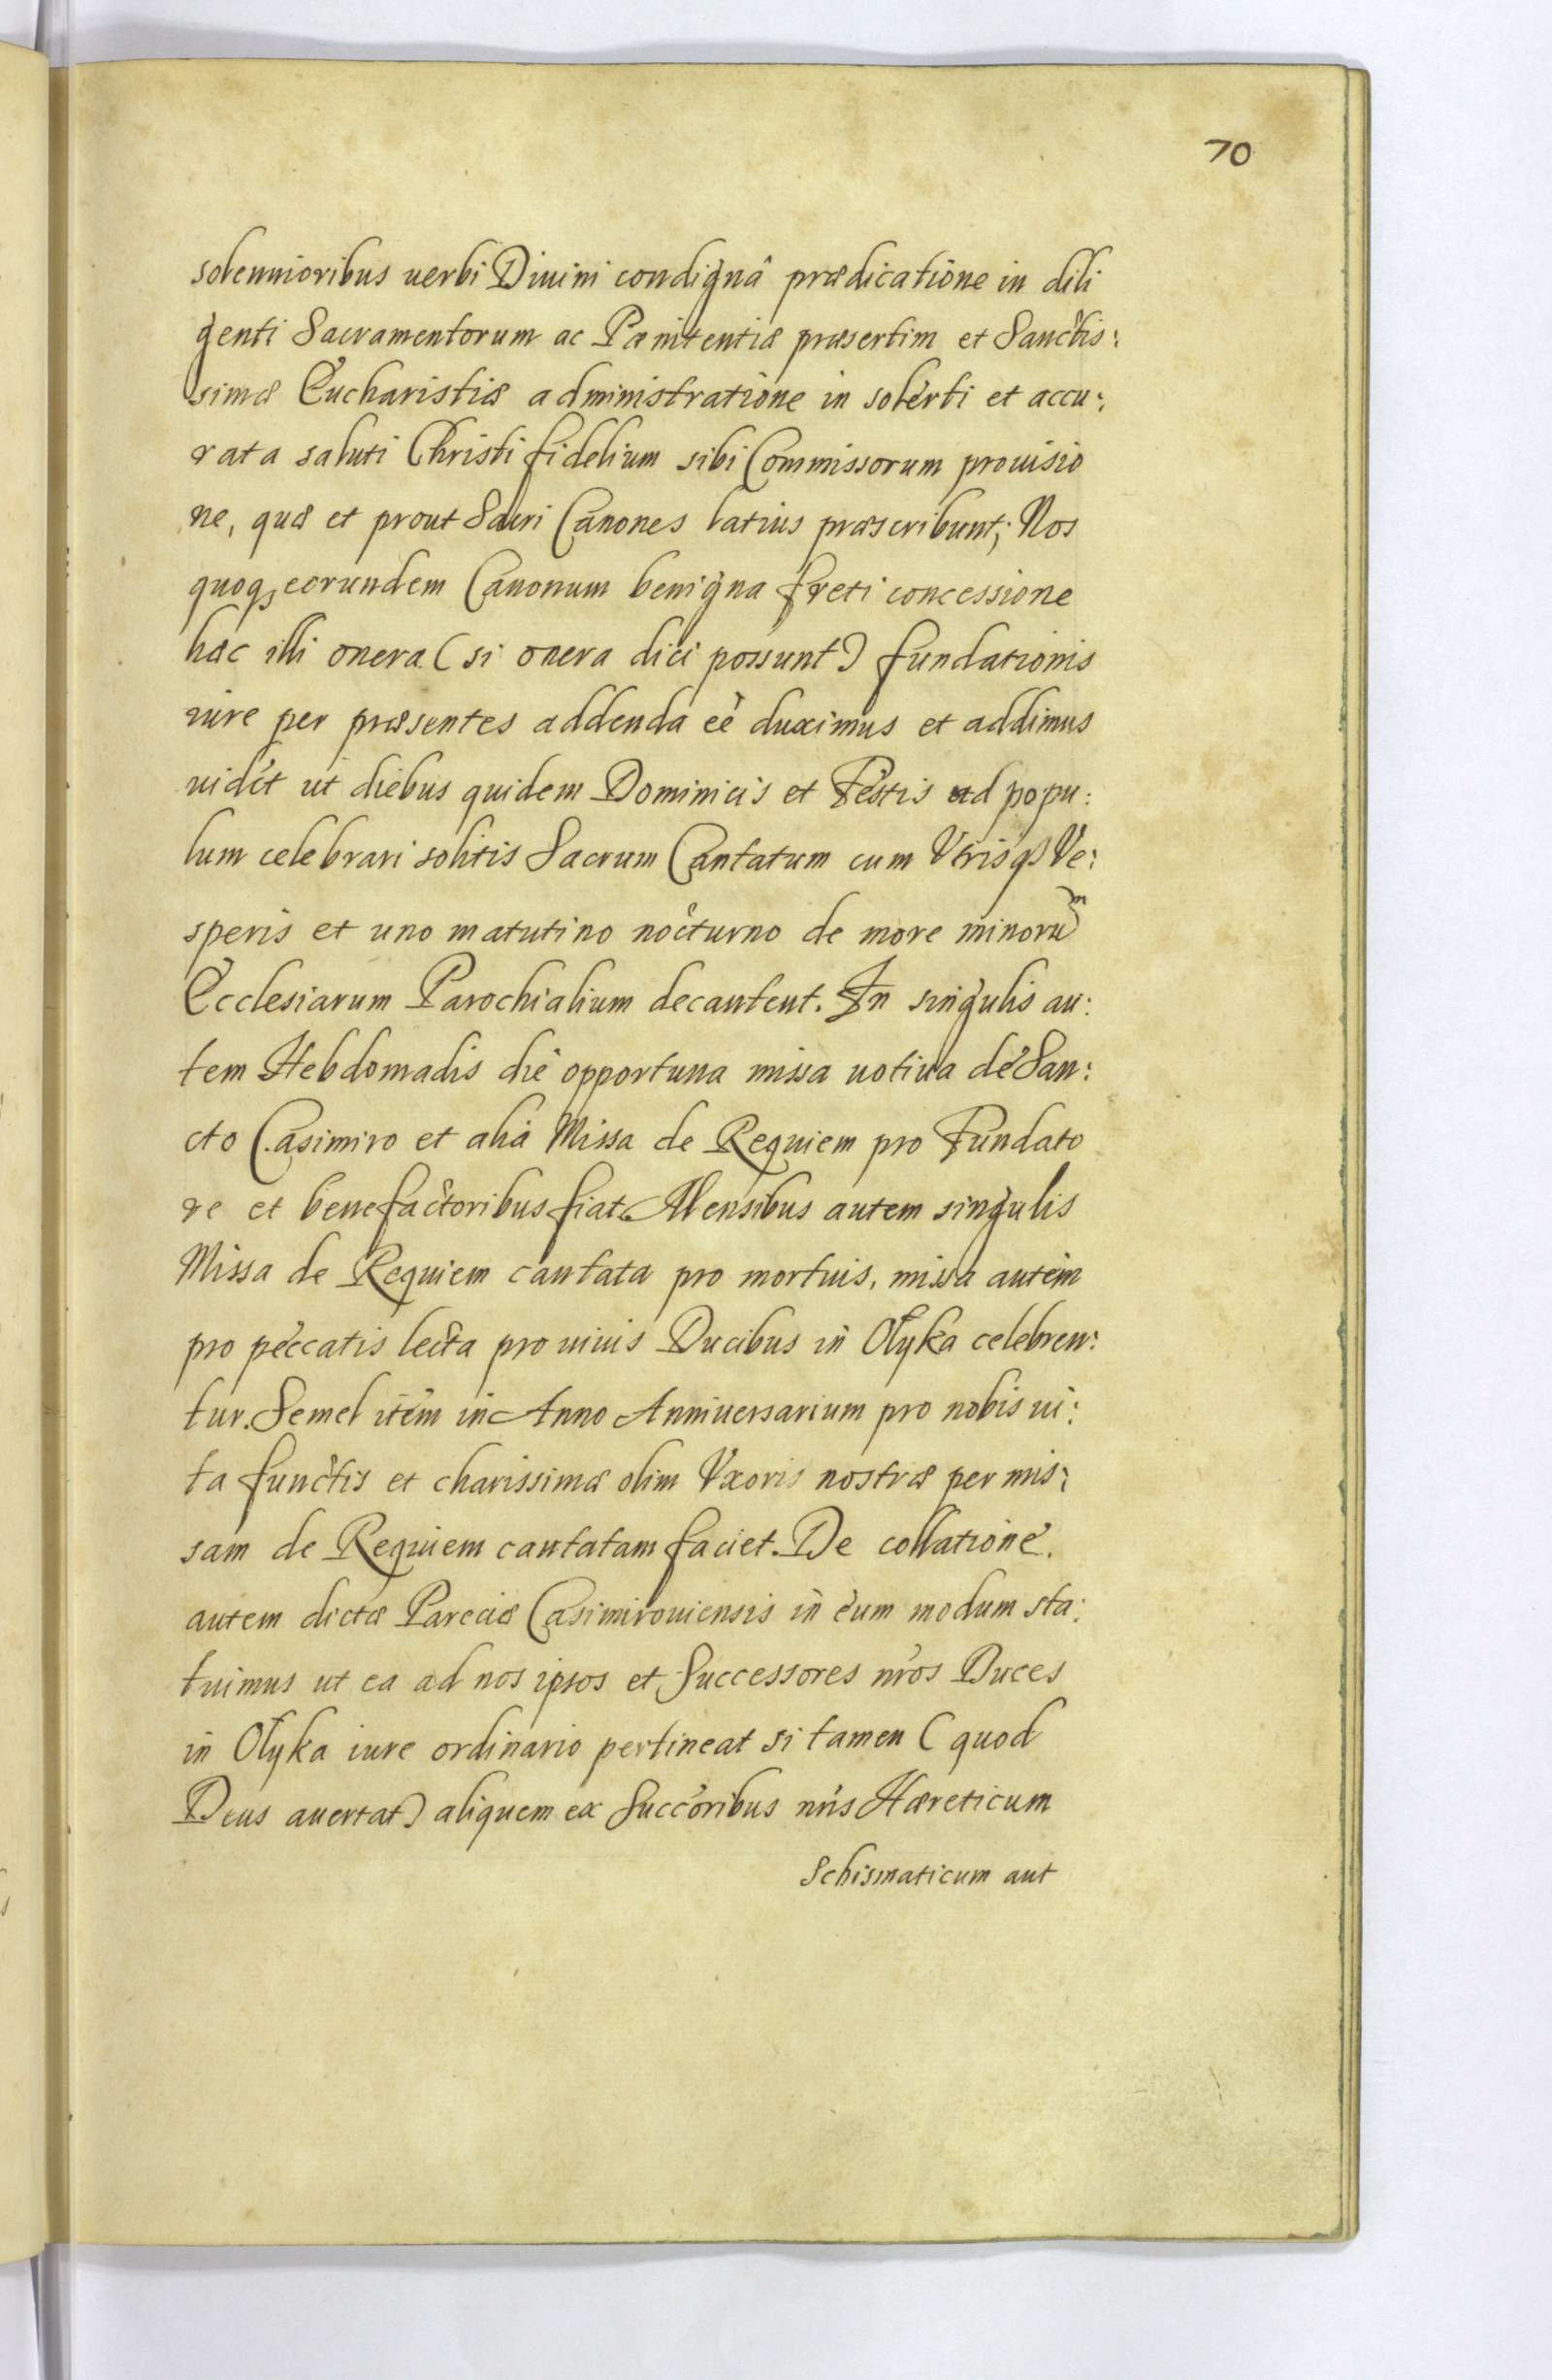 70
solennioribus uerbi Diuini condignâ prædicatione in dili
genti Sacramentorum ac Pænitentiæ præsertim et Sanctis:
simæ Eucharistiæ administratione in solerti et accu:
rata saluti Christi fidelium sibi Commissorum prouisio
ne, quæ et prout Sacri Canones latius præscribunt; Nos
quoq₃ eorundem Canonum benigna freti concessione
hæc illi onera (si onera dici possunt) fundationis
iure per præsentes addenda eé duximus et addimus
uidét ut diebus quidem Dominicis et Festis ad popu:
lum celebrari solitis Sacrum Cantatum cum Vtrisq₃ Ve:
speris et uno matutino nocturno de more minorum
Ecclesiarum Parochialium decantent. In singulis au:
tem Hebdomadis die opportuna missa uotiua de San:
cto Casimiro et alia Missa de Requiem pro Fundato
re et benefactoribus fiat. Mensibus autem singulis
Missa de Requiem cantata pro mortuis, missa autem
pro peccatis lecta pro uiuis Ducibus in Ołyka celebren:
tur. Semel item in Anno Anniuersarium pro nobis ui:
ta functis et charissimæ olim Vxoris nostræ per mis:
sam de Requiem cantatam faciet. De collatione.
autem dictæ Pareciæ Casimirouiensis in eum modum sta:
tuimus ut ea ad nos ipsos et Successores nŕos Duces
in Ołyka iure ordinario pertineat si tamen (quod
Deus auertat) aliquem ex Succoribus nŕis Hæreticum
Schismaticum aut